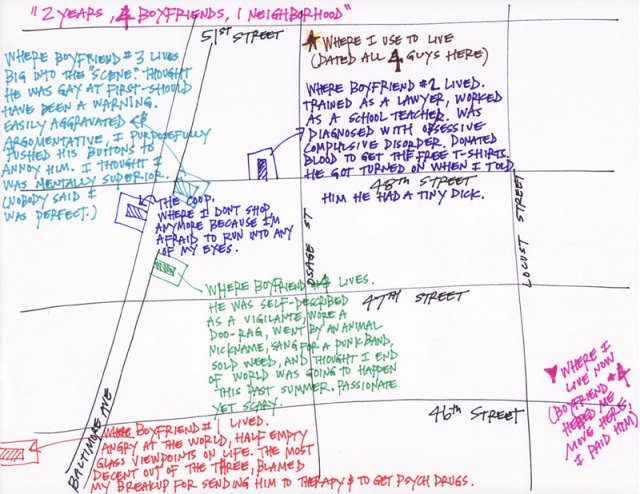 "2 YEARS, 4 BOYFRIENDS, 1 NEIGHBORHOOD"
51ST STREET
WHERE I USE TO LIVE
(DATED ALL 4 GUYS HERE)
WHERE BOYFRIEND #3 LIVES
BIG INTO THE "SCENE". THOUGHT
HE WAS GAY AT FIRST-SHOULD
HAVE BEEN A WARNING.
EASILY AGGRAVATED &
ARGOMENTATIVE, I PURPOSEFULLY
PUSHED HIS BUTTONS TO
ANNOY HIM. I THOUGHT I
WAS MENTALLY SUPERIOR.
(NOBODY SAID I
WAS PERFECT.)
WHERE BOYFRIEND #2 LIVED.
TRAINED AS A LAWYER, WORKED
AS A SCHOOL TEACHER. WAS
DIAGNOSED WITH OBSESSIVE
COMPULSIVE DISORDER. DONATED
BLOOD TO GET THE FREE T-SHIRTS.
HE GOT TURNED ON WHEN I TOLD
HIM HE HAD A TINY DICK.
48TH STREET
THE COOP.
WHERE I DONT SHOP
ANYMORE BECAUSE I'M
AFRAID TO RUN INTO ANY
OF MY EXES.
OSAGE ST
LOCUST STREET
WHERE BOYFRIEND #4 LIVES.
HE WAS SELF-DESCRIBED
AS A VIGILANTE, WORE A
DOO-RAG, WENT BY AN ANIMAL
NICKNAME, SANG FOR A PUNK BAND,
SOLD WEED, AND THOUGHT I END
OF WORLD WAS GOING TO HAPPEN
THIS PAST SUMMER. PASSIONATE
YET SCARY.
47TH STREET
46TH STREET
WHERE I
LIVE NOW
(BOYFRIEND #4
HELPED ME
MOVE HERE,
I PAID HIM)
BALTIMORE AVE
WHERE BOYFRIEND #1 LIVED.
ANGRY AT THE WORLD, HALF EMPTY
GLASS VIEWPOINTS ON LIFE. THE MOST
DECENT OUT OF THE THREE, BLAMED
MY BREAKUP FOR SENDING HIM TO THERAPY & TO GET PSYCH DRUGS.